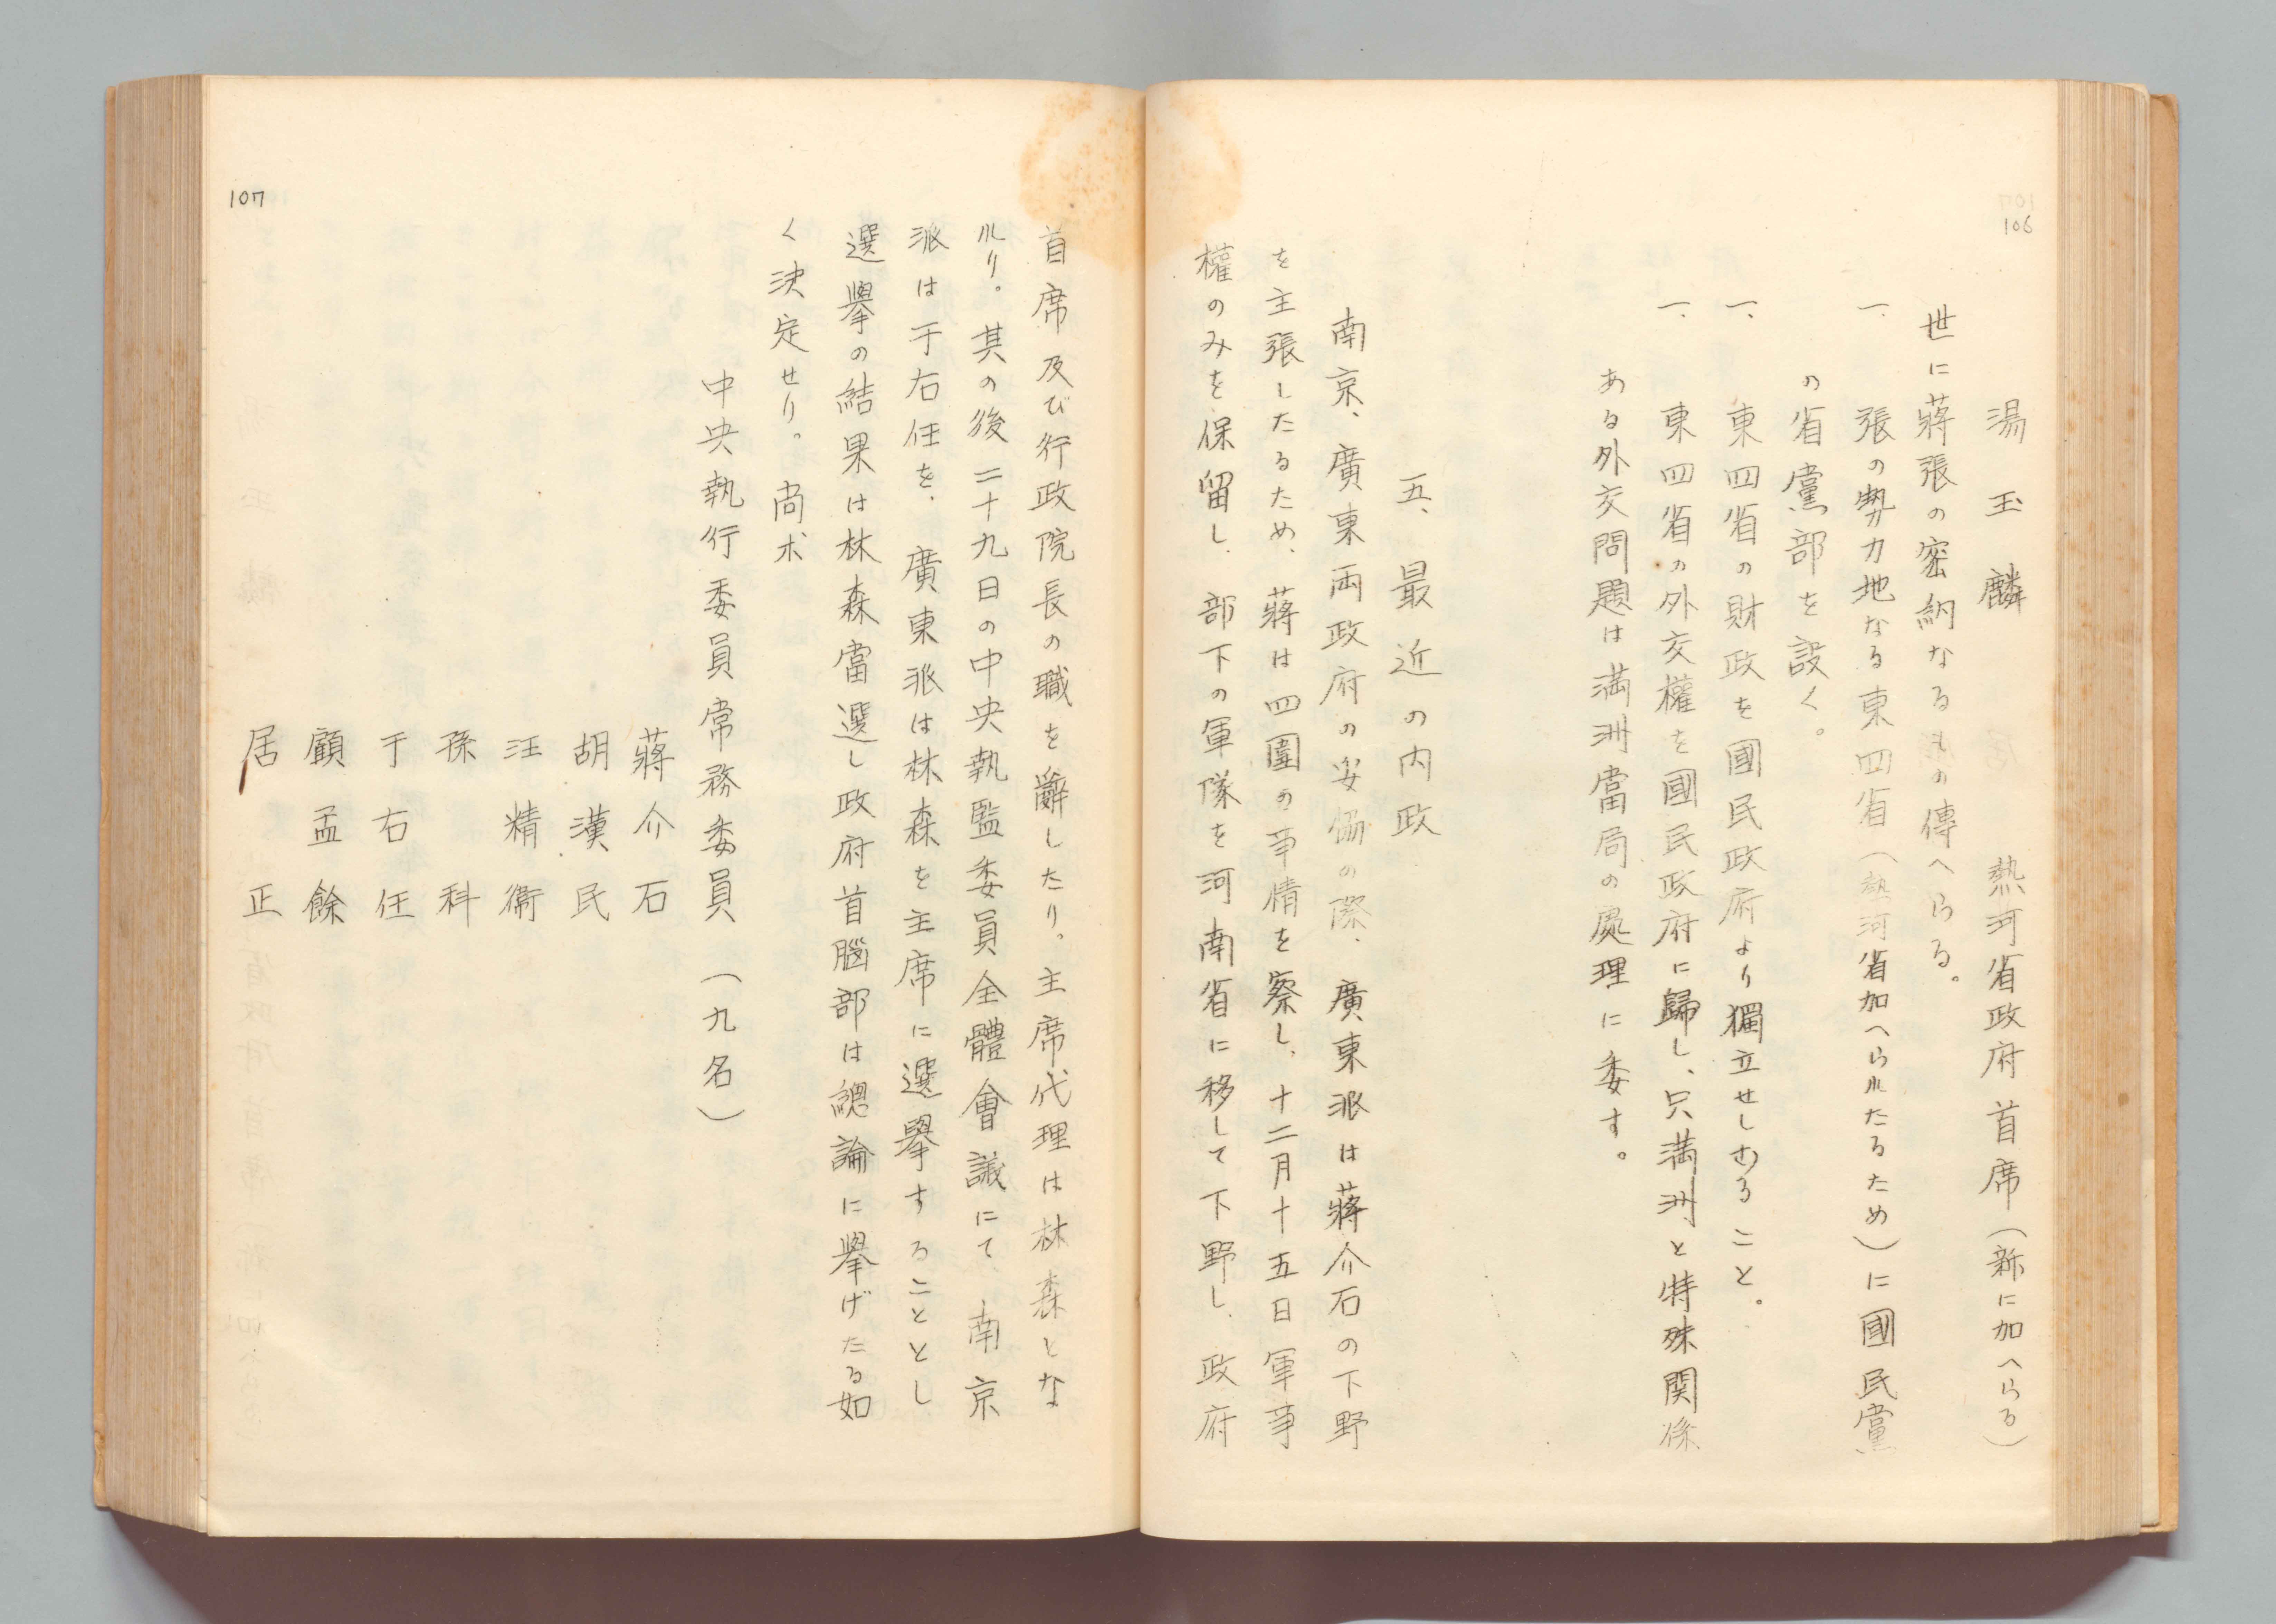 106
湯玉麟　熱河省政府首席（新に加へらる）
世に蔣張の密約なるもの傳へらる。
一、張の勢力地なる東四省（熱河省加へられたるため）に國民黨
の省黨部を設く。
一、東四省の財政を國民政府より獨立せしむること。
一、東四省の外交權を國民政府に歸し、只満洲と特殊関係
ある外交問題は満洲當局の處理に委す。
五、最近の内政
南京、廣東両政府の妥協の際、廣東派は蔣介石の下野
を主張したるため、蔣は四圍の事情を察し、十二月十五日軍事
權のみを保留し、部下の軍隊を河南省に移して下野し、政府
107
首席及び行政院長の職を辭したり。主席代理は林森とな
れり。其の後二十九日の中央執監委員全體會議にて、南京
派は于右任を、廣東派は林森を主席に選擧することとし
選擧の結果は林森當選し政府首腦部は總論に擧げたる如
く決定せり。尚ボ
中央執行委員常務委員（九名）
蔣介石
胡漢民
汪精衞
孫科
于右任
顧孟餘
居正